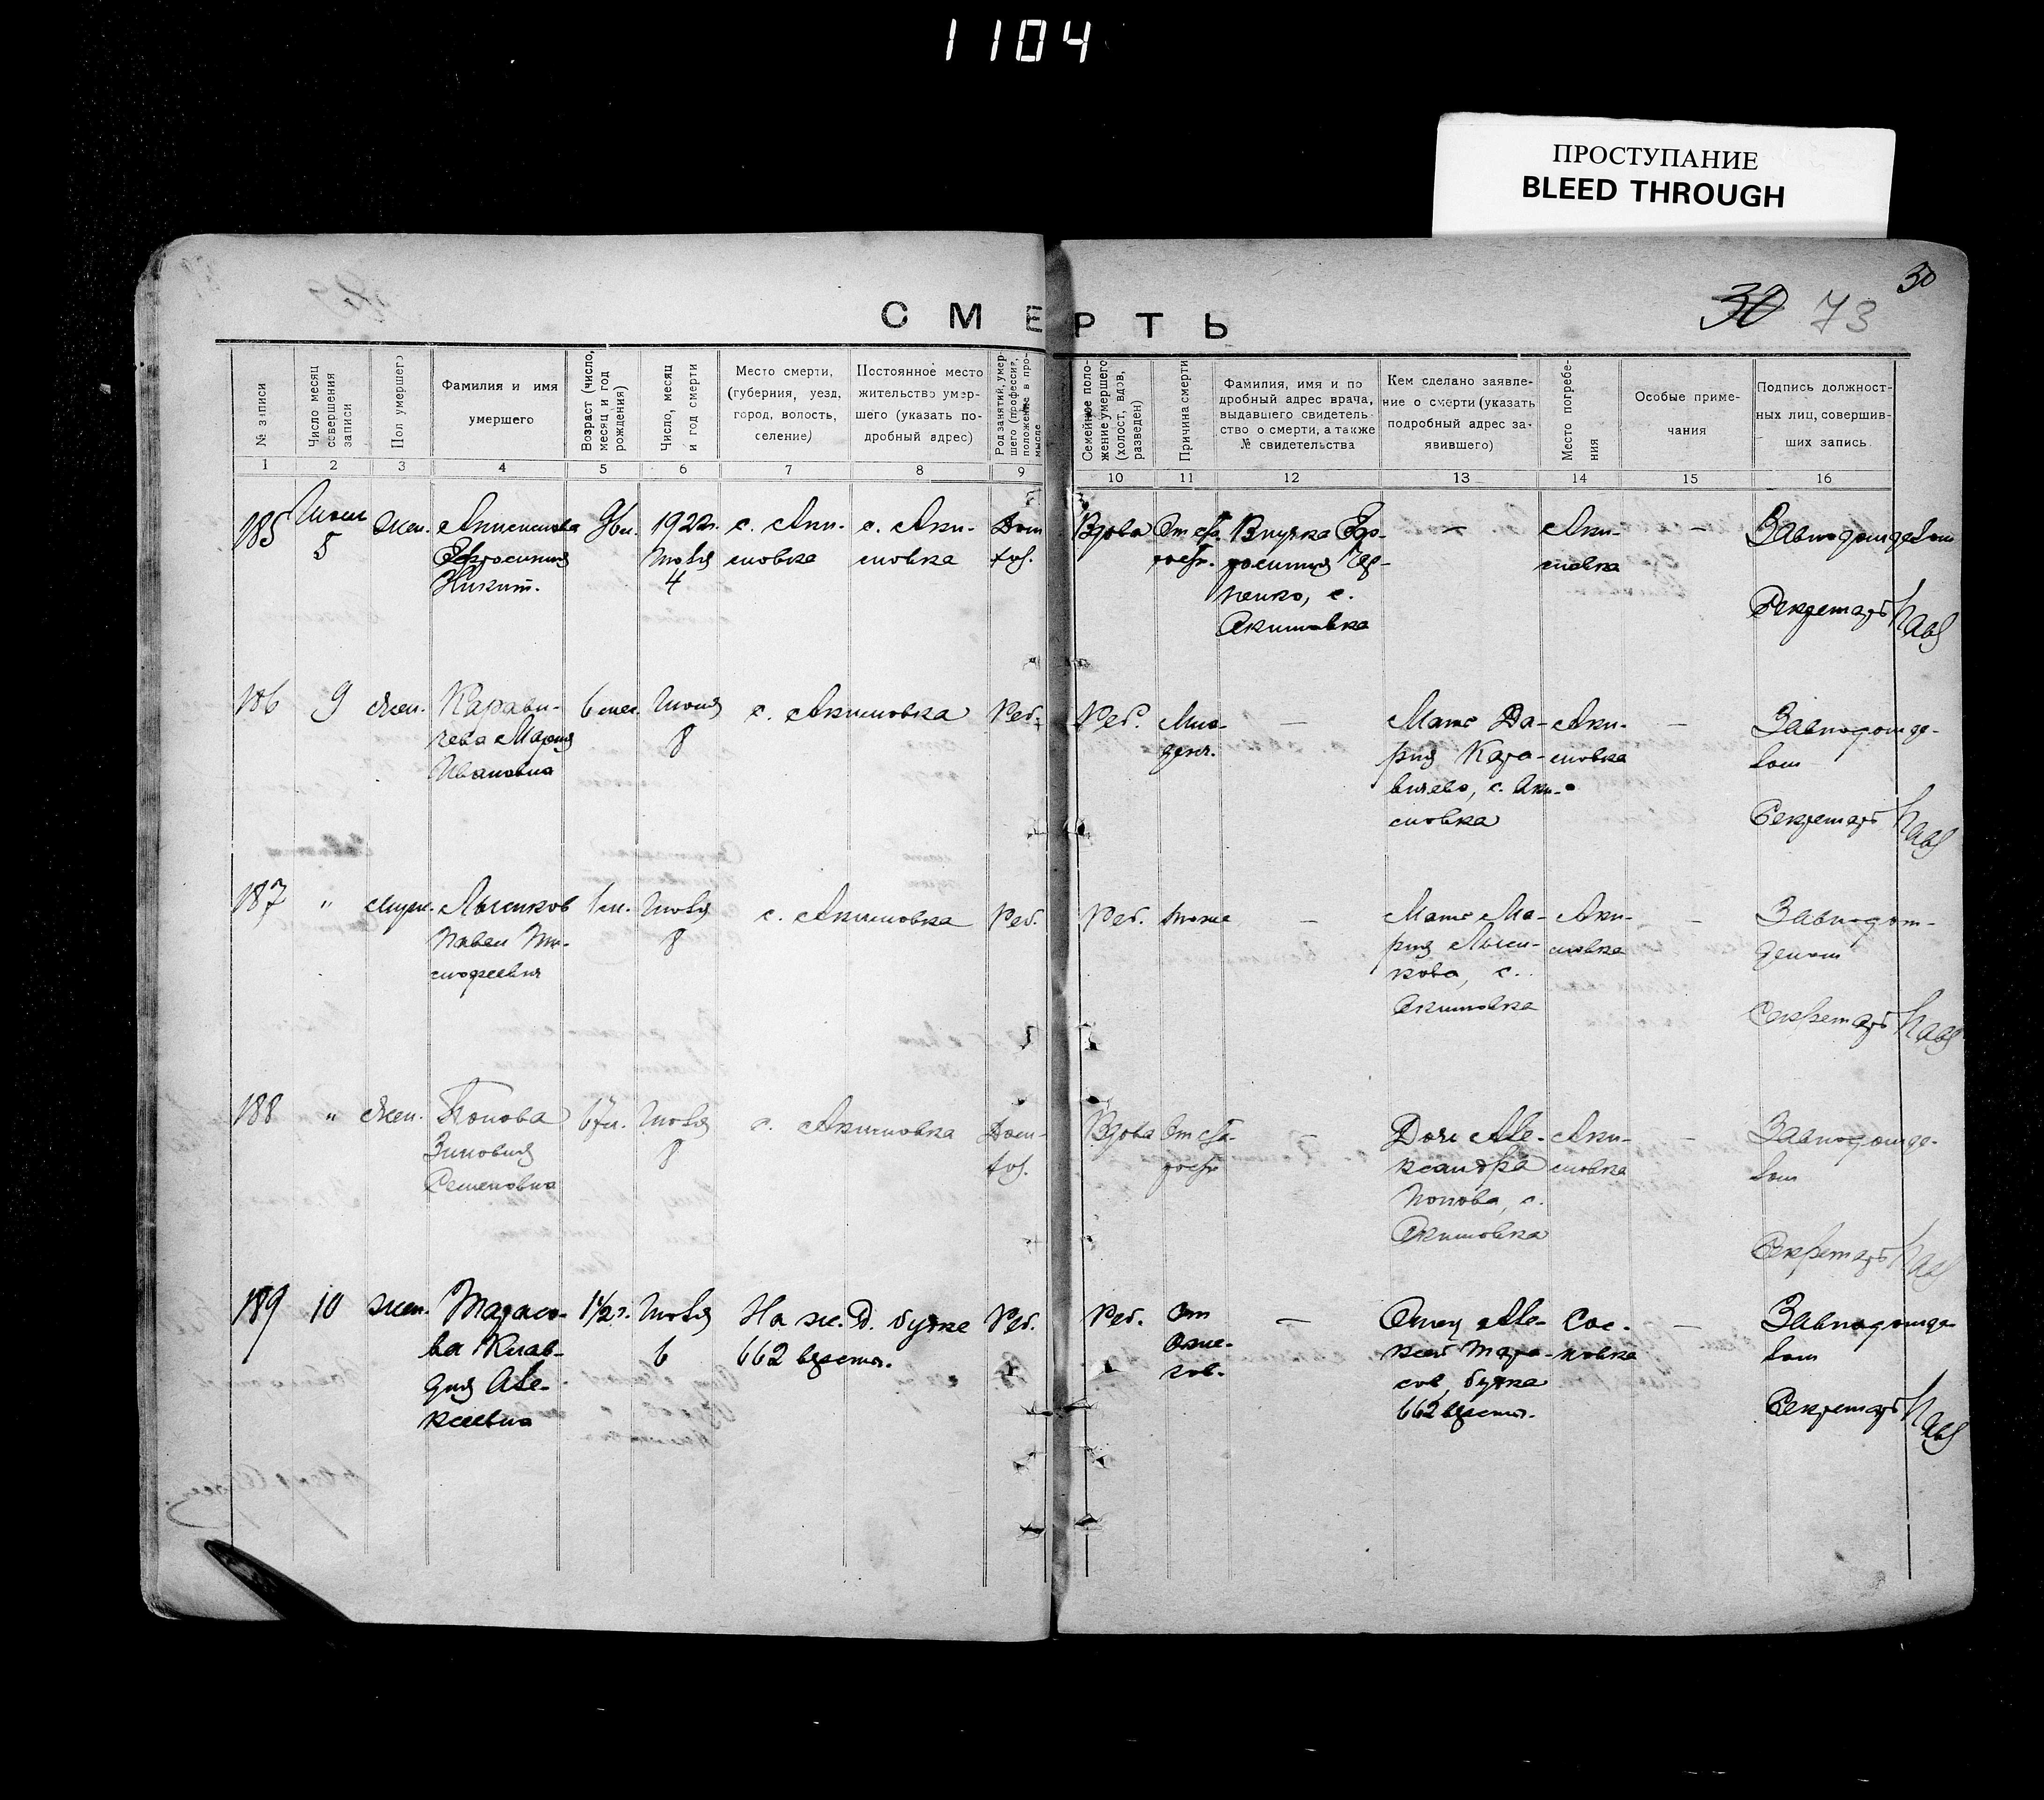 1104
ПРОСТУПАНИЕ
BLEED THROUGH
30
30 73
СМЕРТЬ
№ записи
Число месяц совершения записи
Пол умершего
Фамилия и имя
умершего
Возраст (число, месяц и год рождения)
Число, месяц и год смерти
Место смерти,
(губерния, уезд,
город, волость,
селение)
Постоянное место
жительство умер-
шего (указать по-
дробный адрес)
Род занятий, умер-
шего (профессия,
положение в про-
мысле
Семейное поло-
жение умершего
(холост, вдов,
разведен)
Причина смерти
Фамилия, имя и по
дробный адрес врача,
выдавшего свидетель-
ство о смерти, а также
№ свидетельства
Кем сделано заявле-
ние о смерти (указать
подробный адрес за-
явившего)
Место погребе-
ния
Особые приме-
чания
Подпись должност-
ных лиц, совершив-
ших запись.
1 2 3 4 5 6 7 8 9 10 11 12 13 14 15 16
185
5
жен.
Ефросиния
Никит.
1922 г.
4
с. Аки-
мовка
с. Аки-
мовка
Дом
хоз.
Вдова
От ста
рости.
Внучка Ефро-
росиния
с.
Акимовка
—
Аки-
мовка
—
Завподотделом
Секретарь
186
9
жен.
Карави-
чева Мария
Ивановна
6 мес.
Июля
8
с. Акимовка
Реб.
Реб.
Мла-
денч.
—
Мать Да-
рия Кара-
вичева, с. Аки-
мовка
Аки-
мовка
—
Завподотде-
лом
Секретарь
187
"
муж.
Лысиков
Павел Ти-
мофеевич
Июля
8
с. Акимовка
Реб.
Реб.
тоже
—
Мать Ма-
рия Лыси-
кова, с.
Акимовка
Аки-
мовка
—
Завподот-
делом
Секретарь
188
"
жен.
Попова
Зиновия
Семеновна
67 л.
Июля
8
с. Акимовка
Дом-
хоз.
Вдова
От ста-
рости
—
Дочь Але-
ксандра
Попова, с.
Акимовка
Аки-
мовка
—
Завподотде-
лом
Секретарь
189
10
жен.
Тарасо-
ва Клав-
дия Але-
ксеевна
1½ г.
Июля
6
На ж. д. будке
662 версты.
Реб.
Реб.
От
ожо-
гов.
—
Отец Але-
ксей Тара-
сов, будка
662 версты.
Сос-
новка
—
Завподотде-
лом
Секретарь